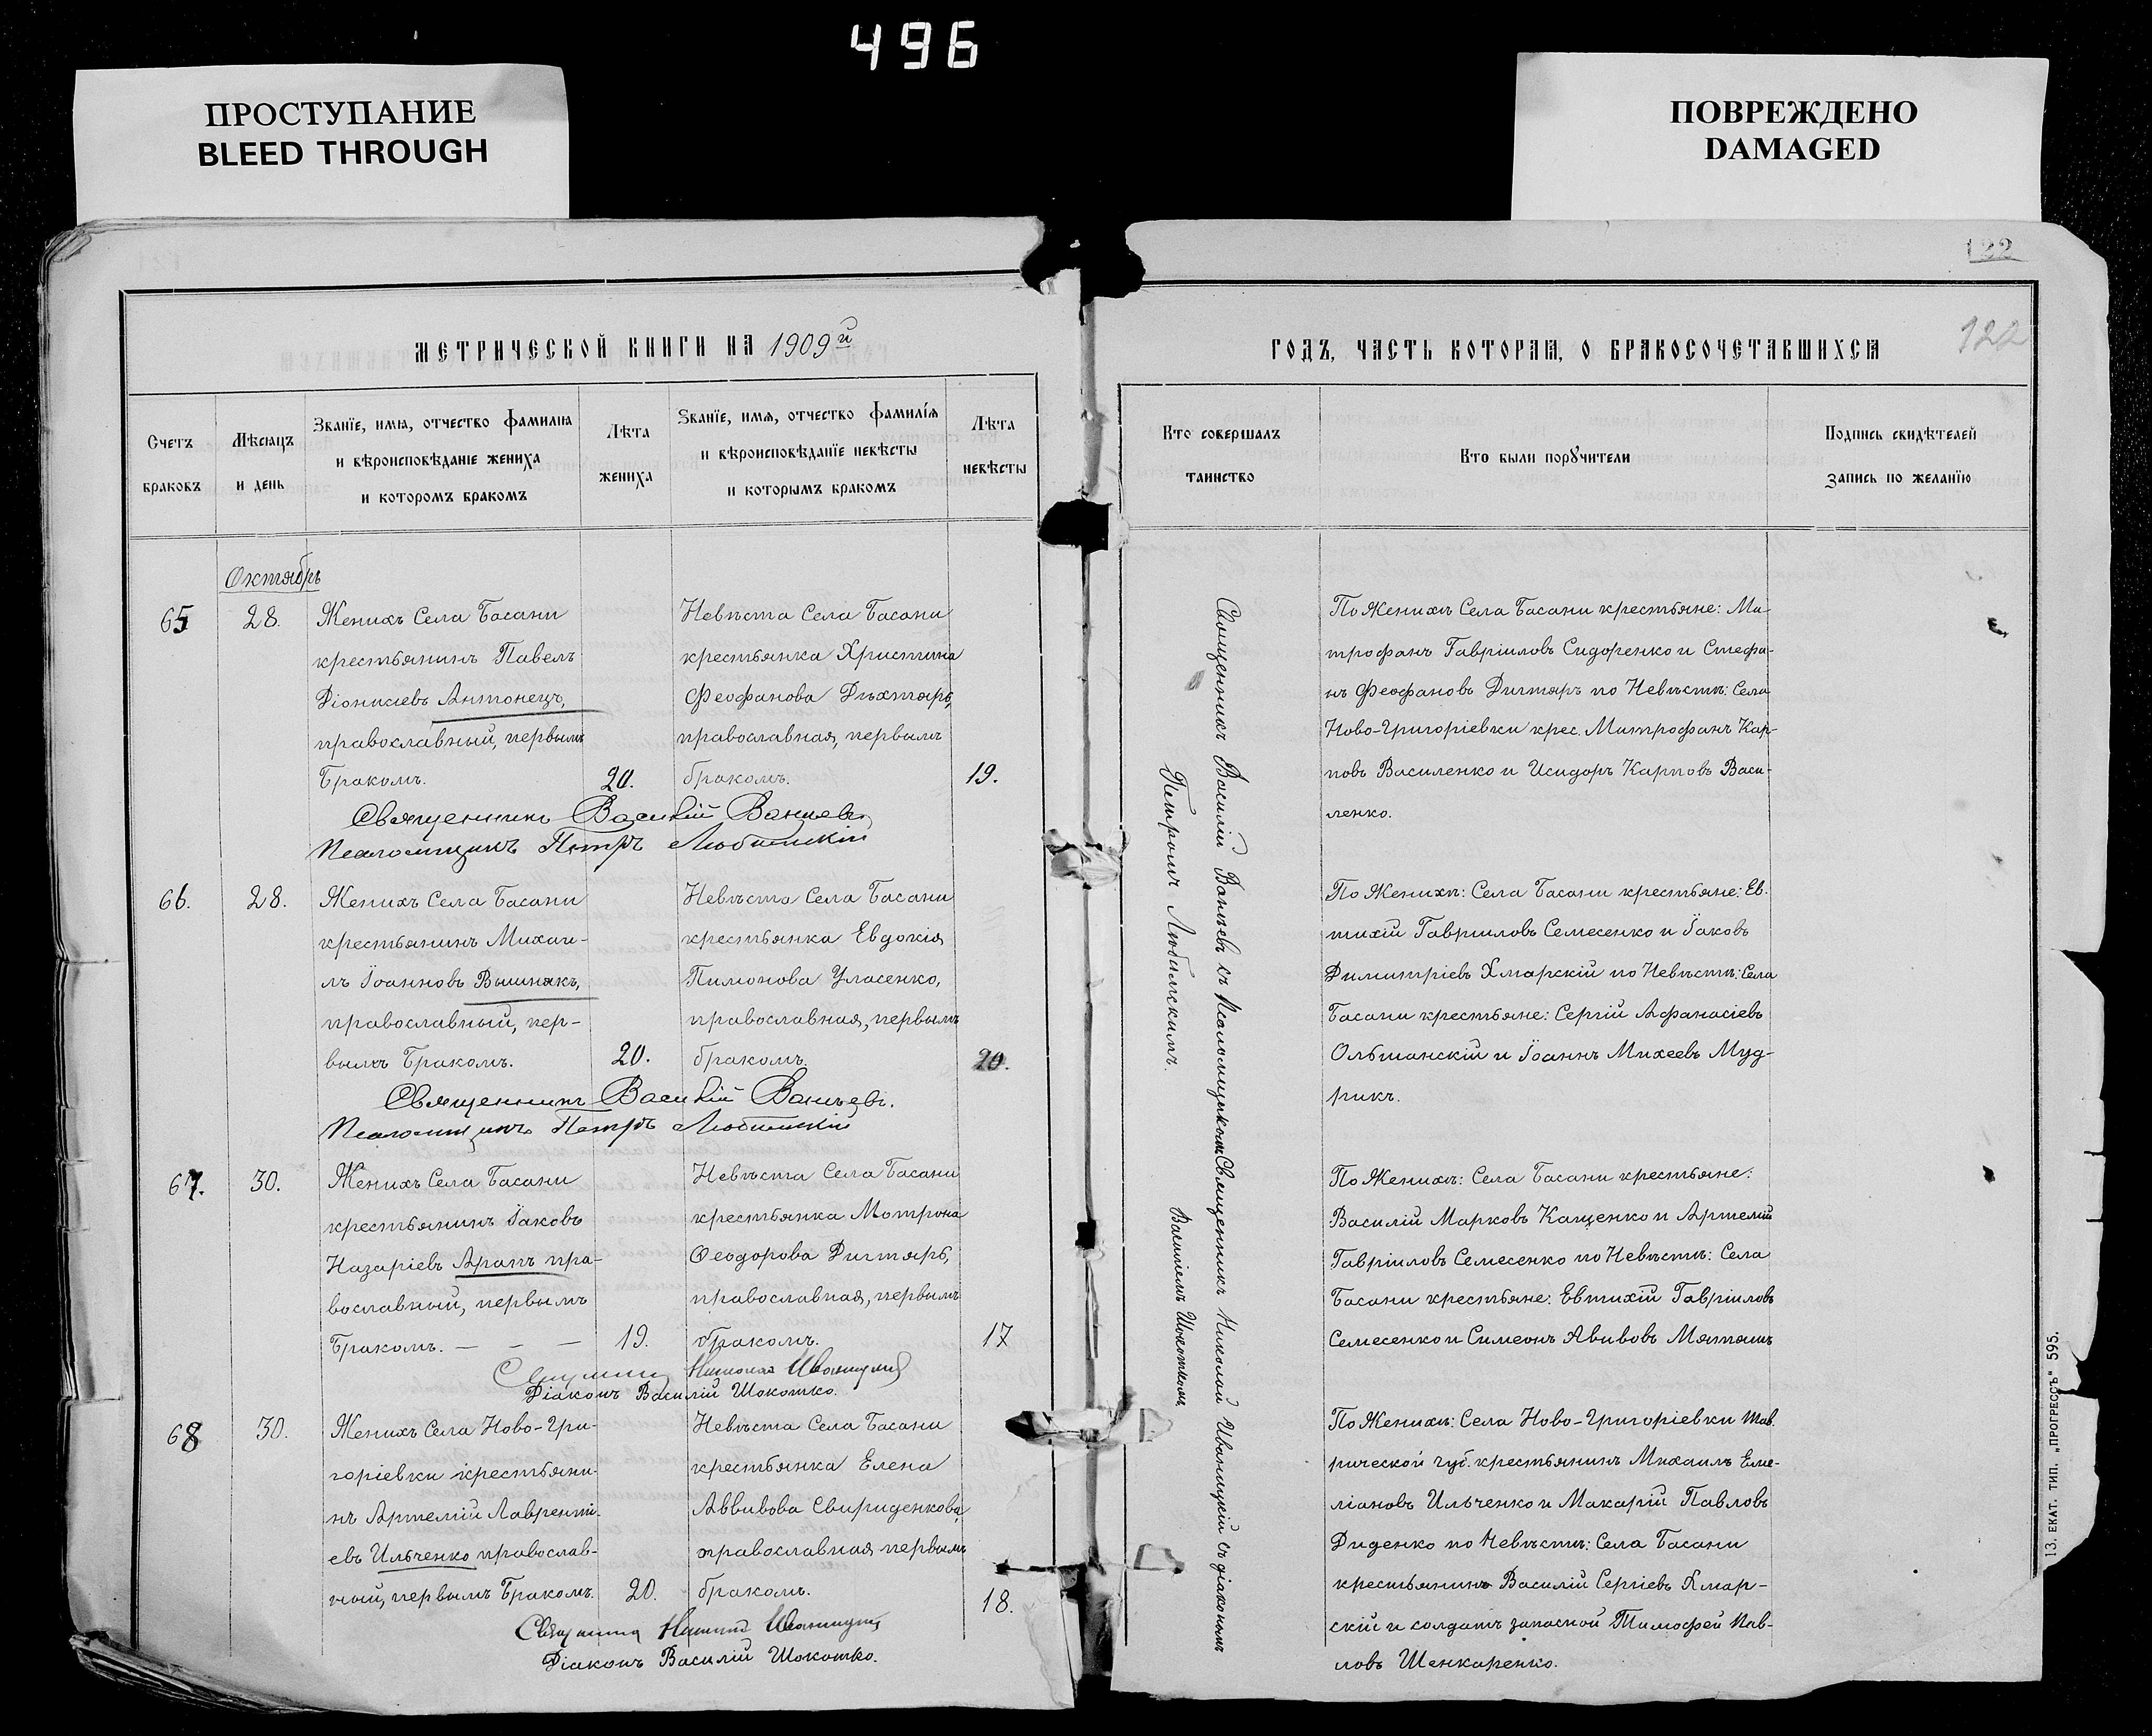 496
ПРОСТУПАНИЕ
BLEED THROUGH
ПОВРЕЖДЕНО
DAMAGED
122
122
МЕТРИЧЕСКОЙ КНИГИ НА 1909й
ГОДЪ, ЧАСТЬ ВТОРАЯ, О БРАКОСОЧЕТАВШИХСЯ
Счетъ
браковъ
Мѣсяцъ
и день
Званїе, имя, отчество фамилия
и вѣроисповѣданіе жениха
и которомъ бракомъ
Лѣта
жениха
Званїе, имя, отчество фамилїя
и вѣроисповѣданїе невѣсты
и которымъ бракомъ
Лѣта
невѣсты
Кто совершалъ
таинство
Кто были порꙋчители
Подпись свидѣтелей
запись по желанїю
Октябрь
65
28.
Женихъ Села Басани
крестьянинъ Павелъ
Діонисіевъ Антонецъ,
православный, первымъ
Бракомъ.
20.
Невѣста Села Басани
крестьянка Христина
Феофанова Дихтярь,
православная, первымъ
бракомъ.
19.
Священникъ Василій Ванцевъ
Псаломщикъ Петръ Любитскій
По Женихѣ Села Басани крестьяне: Ми-
трофанъ Гавріиловъ Сидоренко и Стефа-
нъ Феофановъ Дигтяръ по Невѣстѣ: Села
Ново-Григоріевки крес. Митрофанъ Кар-
повъ Василенко и Исидоръ Карповъ Васи-
ленко.
66.
28.
Женихъ Села Басани
крестьянинъ Михаи-
лъ Іоанновъ Вышнякъ,
православный, пер-
вымъ Бракомъ.
20.
Невѣста Села Басани
крестьянка Евдокія
Пимонова Уласенко,
православная, первымъ
бракомъ.
20.
Священникъ Василій Ванцевъ.
Псаломщикъ Петръ Любитскій
По Женихѣ: Села Басани крестьяне: Ев-
тихій Гавриловъ Семесенко и Іаковъ
Димитріевъ Хмарскій по Невѣстѣ: Села
Басани крестьяне: Сергій Афанасіевъ
Ольшанскій и Іоаннъ Михеевъ Муд-
рикъ.
67.
30.
Женихъ Села Басани
крестьянинъ Іаковъ
Назаріевъ Арапъ пра-
вославный, первымъ
Бракомъ. — — —
19.
Невѣста Села Басани
крестьянка Мотрона
Ѳеодорова Дигтярь,
православная, первымъ
бракомъ.
17
Священникъ Николай Иваницкій
Діаконъ Василій Шокотко.
По Женихѣ: Села Басани крестьяне:
Василій Марковъ Кащенко и Артемій
Гавріиловъ Семесенко по Невѣстѣ: Села
Басани крестьяне: Евтихій Гавріиловъ
Семесенко и Симеонъ Авивовъ Мятяшъ
68
30.
Женихъ Села Ново-Гри-
горіевки крестьяни-
нъ Артемій Лаврентi-
евъ Ильченко православ-
ный, первымъ Бракомъ.
20.
Невѣста Села Басани
крестьянка Елена
Аввивова Свириденкова,
православная первымъ
бракомъ.
18.
Священникъ Николай Иваницкій
Діаконъ Василій Шокотко.
По Женихѣ: Села Ново-Григоріевки Тав-
рической губ. крестьянинъ Михаилъ Еме-
ліановъ Ильченко и Макарій Павловъ
Диденко по Невѣстѣ: Села Басани
крестьянинъ Василій Сергіевъ Хмар-
скій и солдатъ запасной Тимофей Пав-
ловъ Шенкаренко.
Священникъ Василій Ванцевъ съ Псаломщикомъ
Петромъ Любитскимъ.
Священникъ Николай Иваницкій съ діакономъ
Василіемъ Шокоткомъ
13. ЕКАТ. ТИП. „ПРОГРЕССЪ" 595.